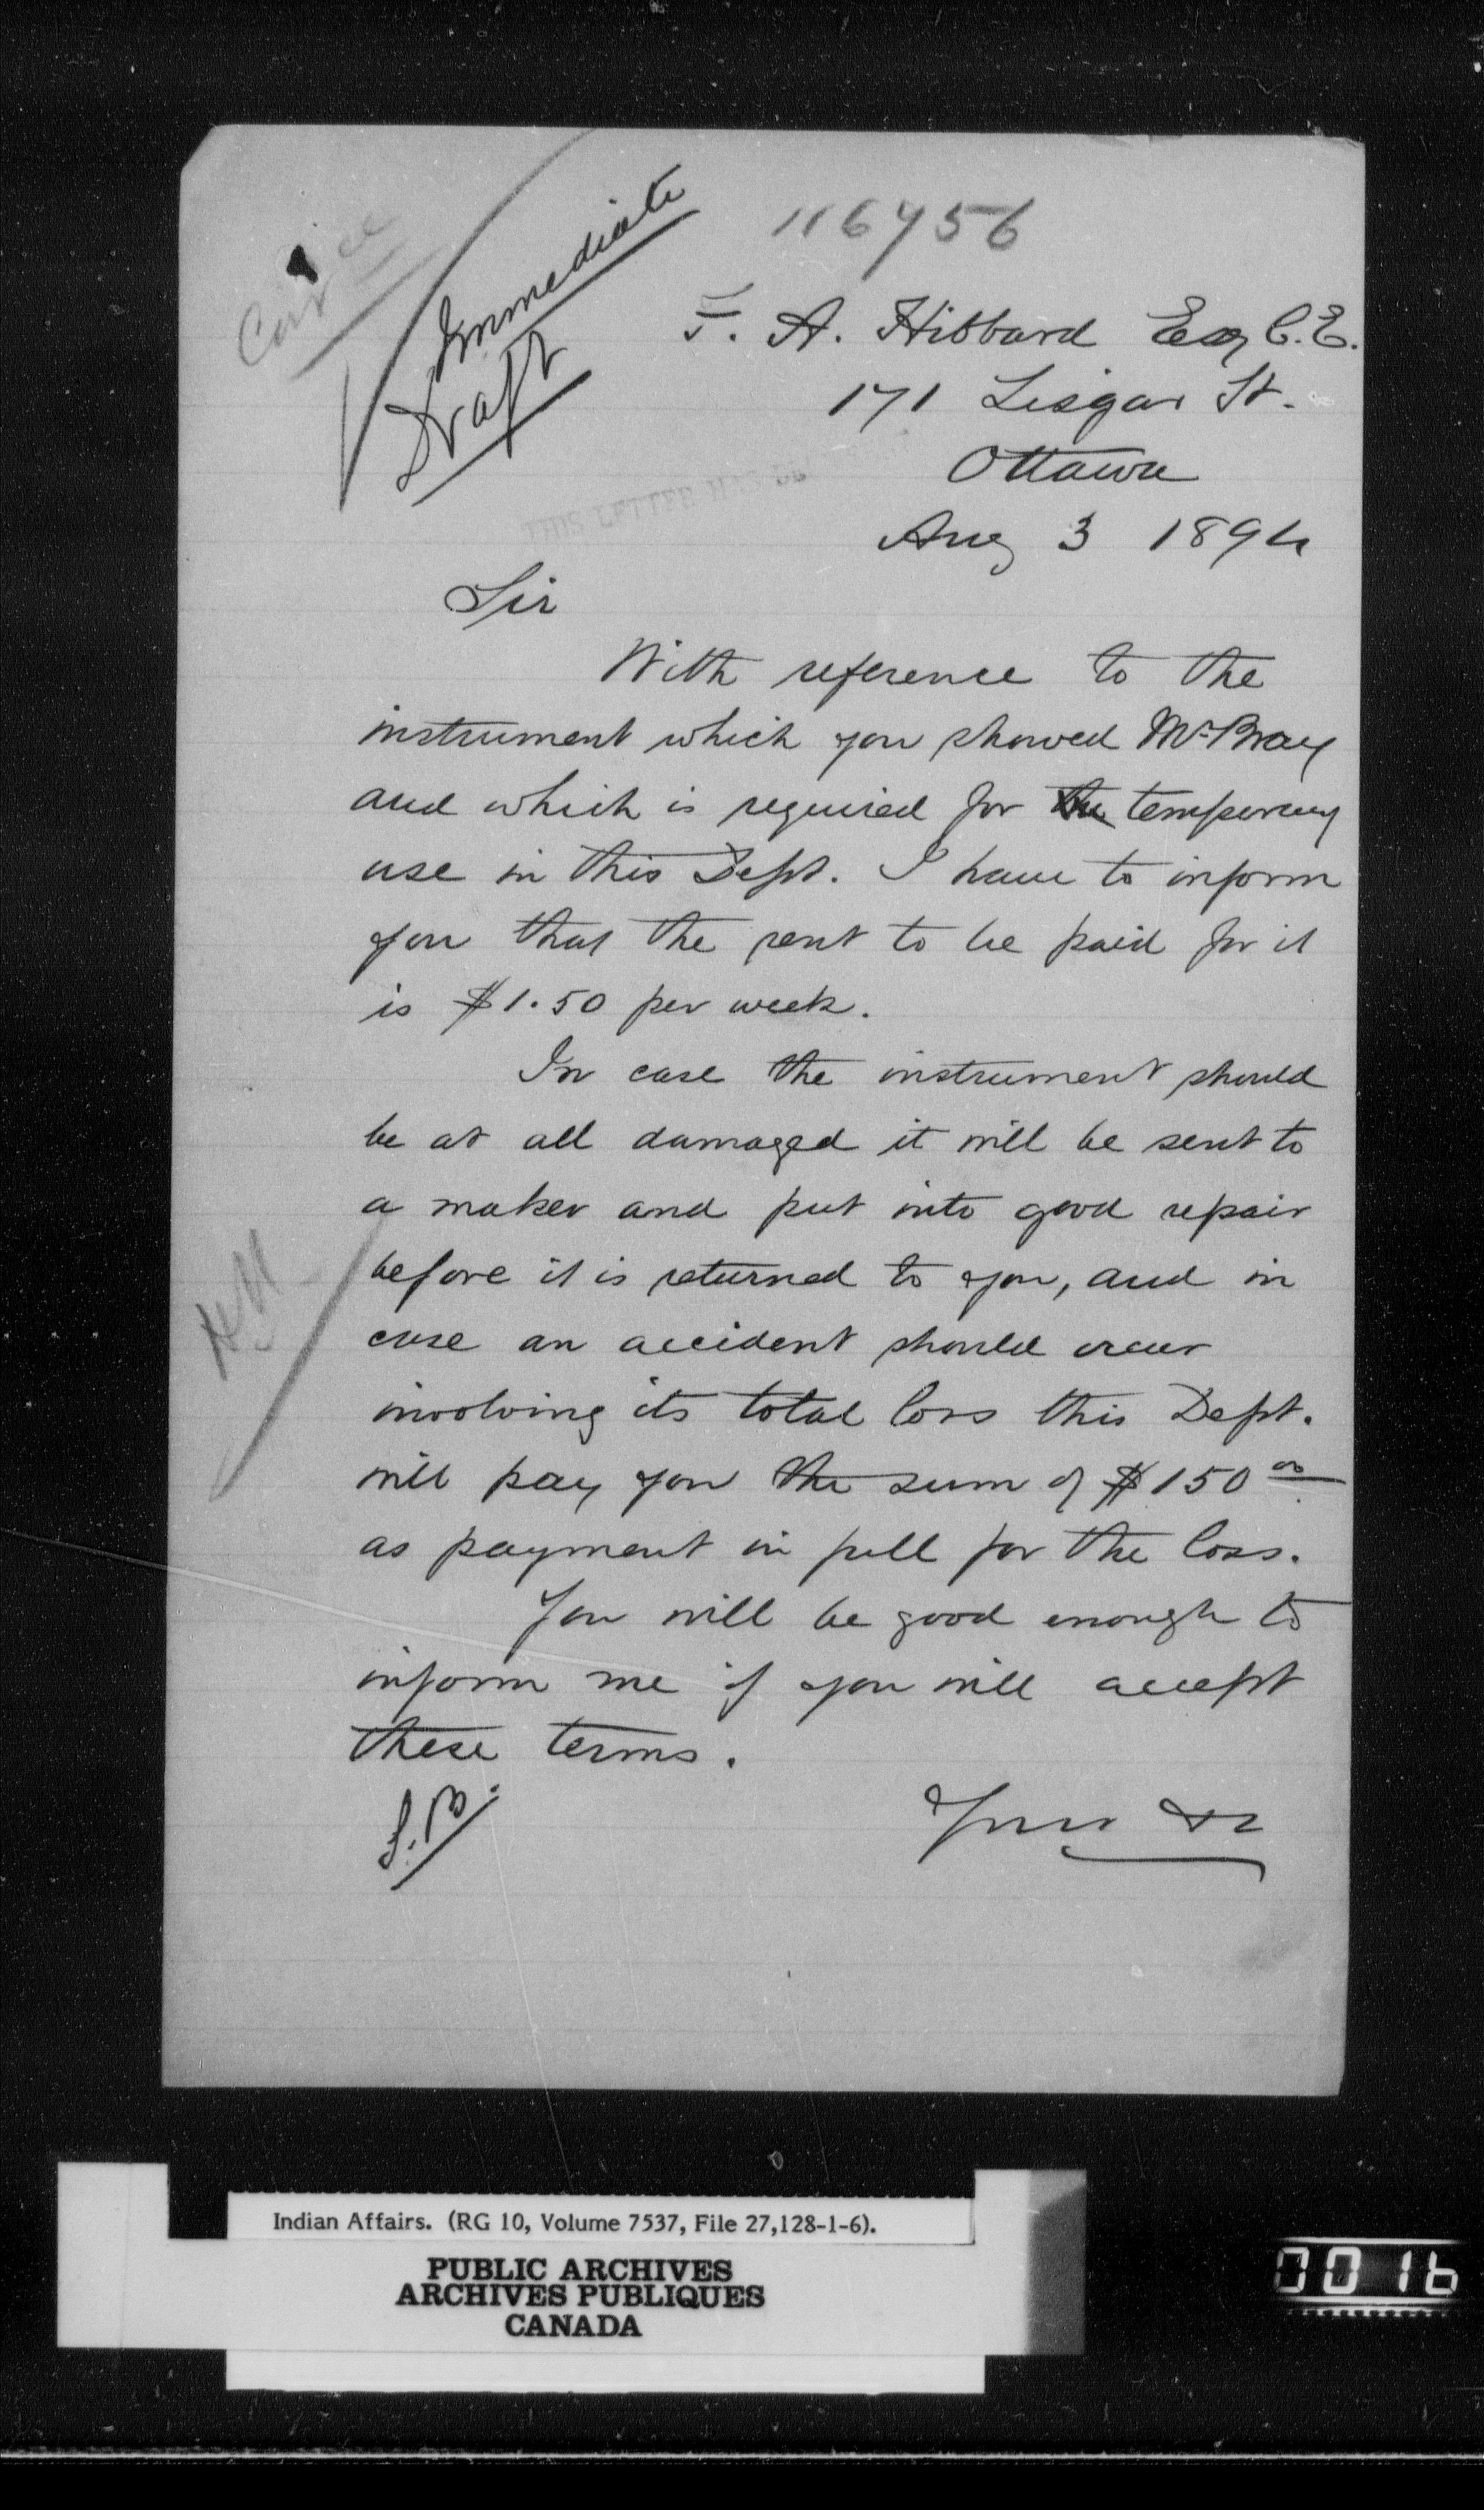 116756
Immediate
Draft
F. A. Hibbard Esq C.E.
171 Lisgar St.
Ottawa
Aug 3 1894
THIS LETTER
Sir
With reference to the
instrument which you showed Mr Bray
and which is required for the temporary
use in this Dept. I have to inform
you that the rent to be paid for it
is $1.50 per week.
In case the instrument should
be at all damaged it will be sent to
a maker and put into good repair
before it is returned to you, and in
case an accident should occur
involving its total loss this Dept.
will pay you the sum of $150 00
as payment in full for the loss.
You will be good enough to
inform me if you will accept
these terms.
S.B.
Your &c
Indian Affairs. (RG 10, Volume 7537, File 27,128-1-6).
PUBLIC ARCHIVES
ARCHIVES PUBLIQUES
CANADA
0016